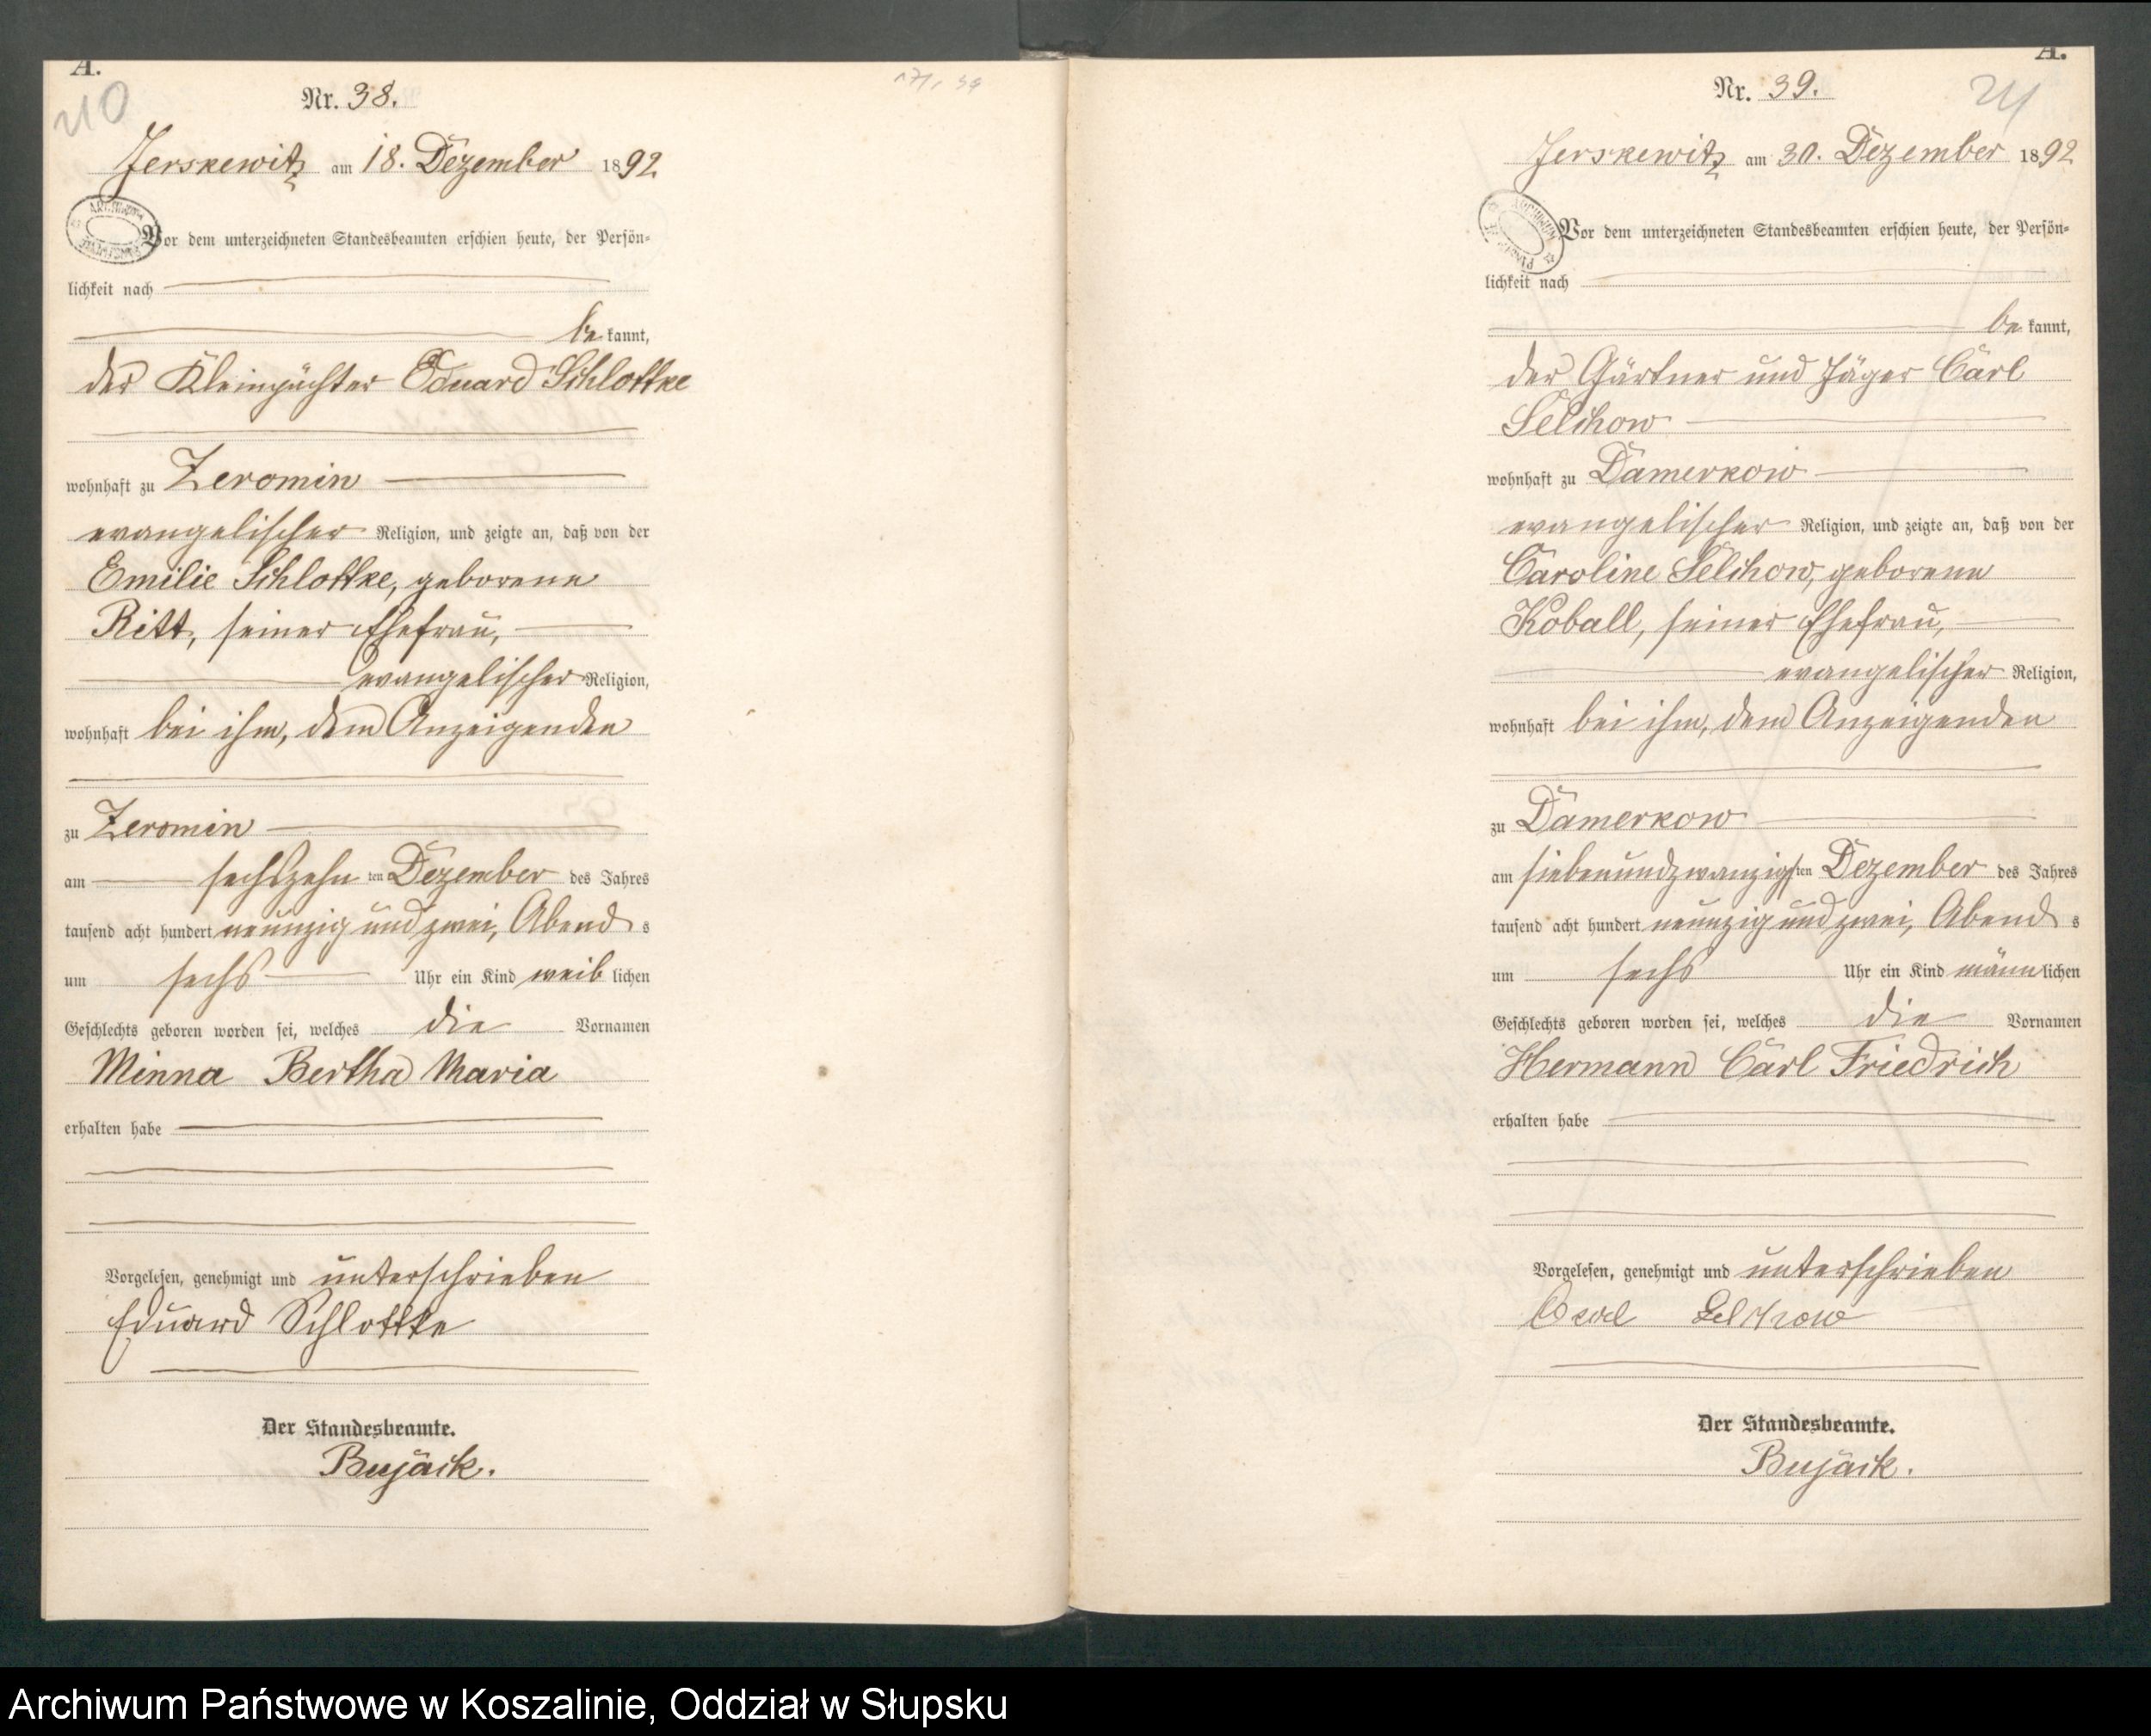 A.
Nr. 38.
Jerskewitz am 18. Dezember 1892
Vor dem unterzeichneten Standesbeamten erschien heute, der Persön-
lichkeit nach
be kannt,
der Kleinpächter Eduard Schlottke
wohnhaft zu Zeromin
evangelischer Religion, und zeigte an, daß von der
Emilie Schlottke, geborene
Ritt, seiner Ehefrau,
evangelischer Religion,
wohnhaft bei ihm, dem Anzeigenden
zu Zeromin
am sechszehn ten Dezember des Jahres
tausend acht hundert neunzig und zwei, Abend s
um sechs Uhr ein Kind weib lichen
Geschlechts geboren worden sei, welches die Vornamen
Minna Bertha Maria
erhalten habe
Vorgelesen, genehmigt und unterschrieben
Eduard Schlottke
Der Standesbeamte.
Bujack.
A.
Nr. 39.
Jerskewitz am 30. Dezember 1892
Vor dem unterzeichneten Standesbeamten erschien heute, der Persön-
lichkeit nach
be kannt,
der Gärtner und Jäger Carl
Selchow
wohnhaft zu Damerkow
evangelischer Religion, und zeigte an, daß von der
Caroline Selchow, geborene
Koball, seiner Ehefrau,
evangelischer Religion,
wohnhaft bei ihm, dem Anzeigenden
zu Damerkow
am siebenundzwanzigsten Dezember des Jahres
tausend acht hundert neunzig und zwei, Abend s
um sechs Uhr ein Kind männ lichen
Geschlechts geboren worden sei, welches die Vornamen
Hermann Carl Friedrich
erhalten habe
Vorgelesen, genehmigt und unterschrieben
Carl Selchow
Der Standesbeamte.
Bujack.
Archiwum Państwowe w Koszalinie, Oddział w Słupsku